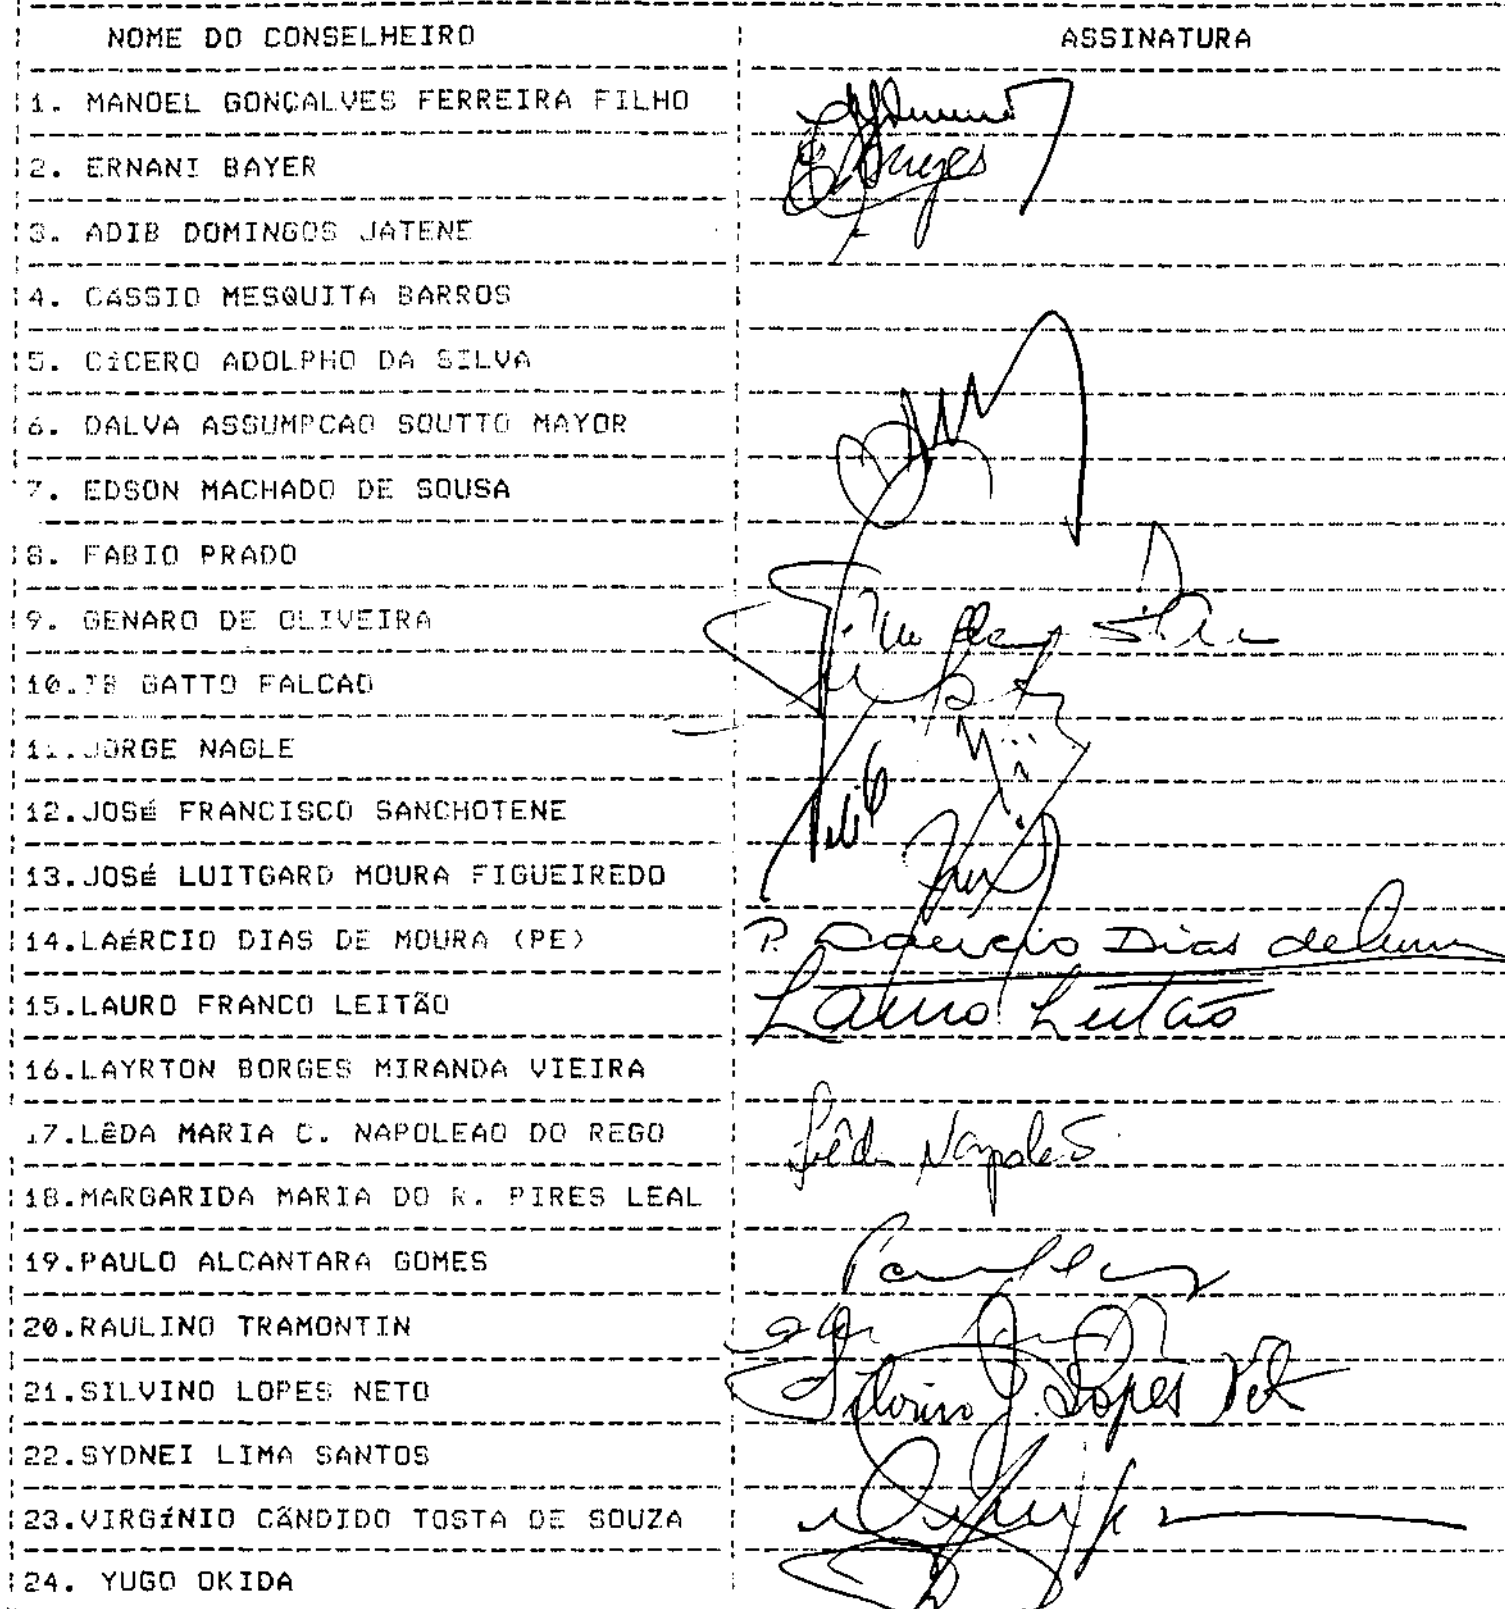 NOME DO CONSELHEIRO ASSINATURA
1. MANOEL GONÇALVES FERREIRA FILHO
2. ERNANI BAYER
3. ADIB DOMINGOS JATENE
4. CASSIO MESQUITA BARROS
5. CÍCERO ADOLPHO DA SILVA
6. DALVA ASSUMPCAO SOUTTO MAYOR
7. EDSON MACHADO DE SOUSA
8. FABIO PRADO
9. GENARO DE OLIVEIRA
10.IB GATTO FALCAO
11.JORGE NAGLE
12.JOSÉ FRANCISCO SANCHOTENE
13.JOSÉ LUITGARD MOURA FIGUEIREDO
14.LAÉRCIO DIAS DE MOURA (PE) P. Laercio Dias de
15.LAURO FRANCO LEITÃO Lauro Leitão
16.LAYRTON BORGES MIRANDA VIEIRA
17.LÊDA MARIA C. NAPOLEAO DO REGO Lêda Napoleão
18.MARGARIDA MARIA DO R. PIRES LEAL
19.PAULO ALCANTARA GOMES
20.RAULINO TRAMONTIN
21.SILVINO LOPES NETO Silvino Lopes Neto
22.SYDNEI LIMA SANTOS
23.VIRGÍNIO CÃNDIDO TOSTA DE SOUZA
24. YUGO OKIDA